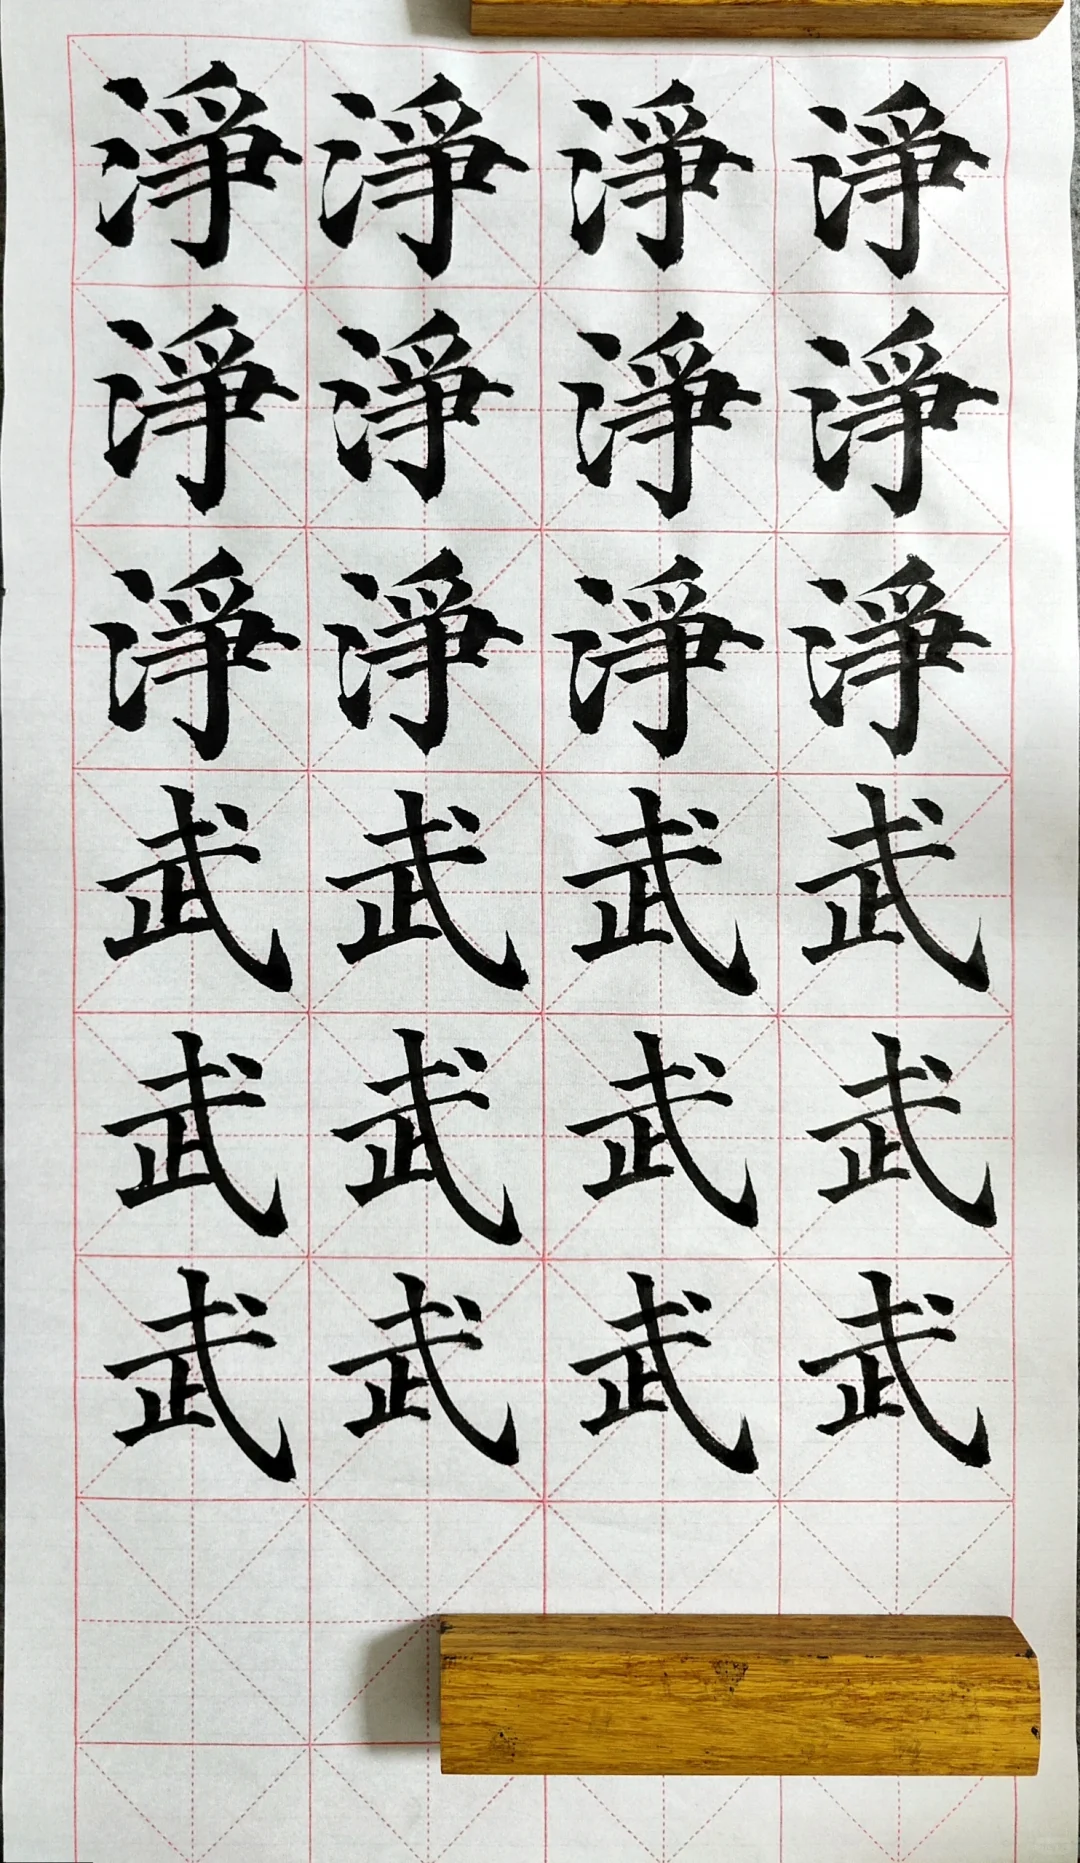 淨淨淨淨
淨淨淨淨
淨淨淨淨
武武武武
武武武武
武武武武